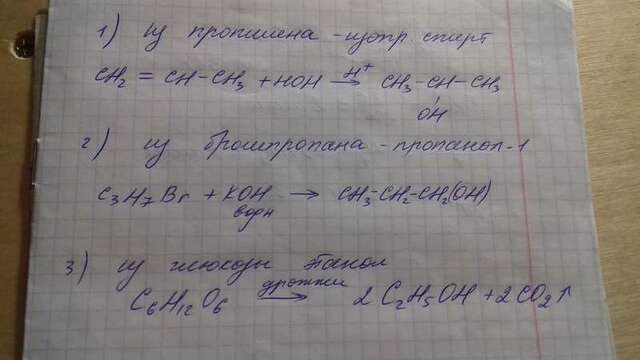 1) Из пропилена - изопр. спирт
CH2 = CH-CH3 + HOH H+→ CH3-CH-CH3
OH
2) Из бромпропана - пропанол-1
C3H7Br + KOH → CH3-CH2-CH2(OH)
водн
3) Из глюкозы этанол
C6H12O6 дрожжи→ 2 C2H5OH + 2CO2↑